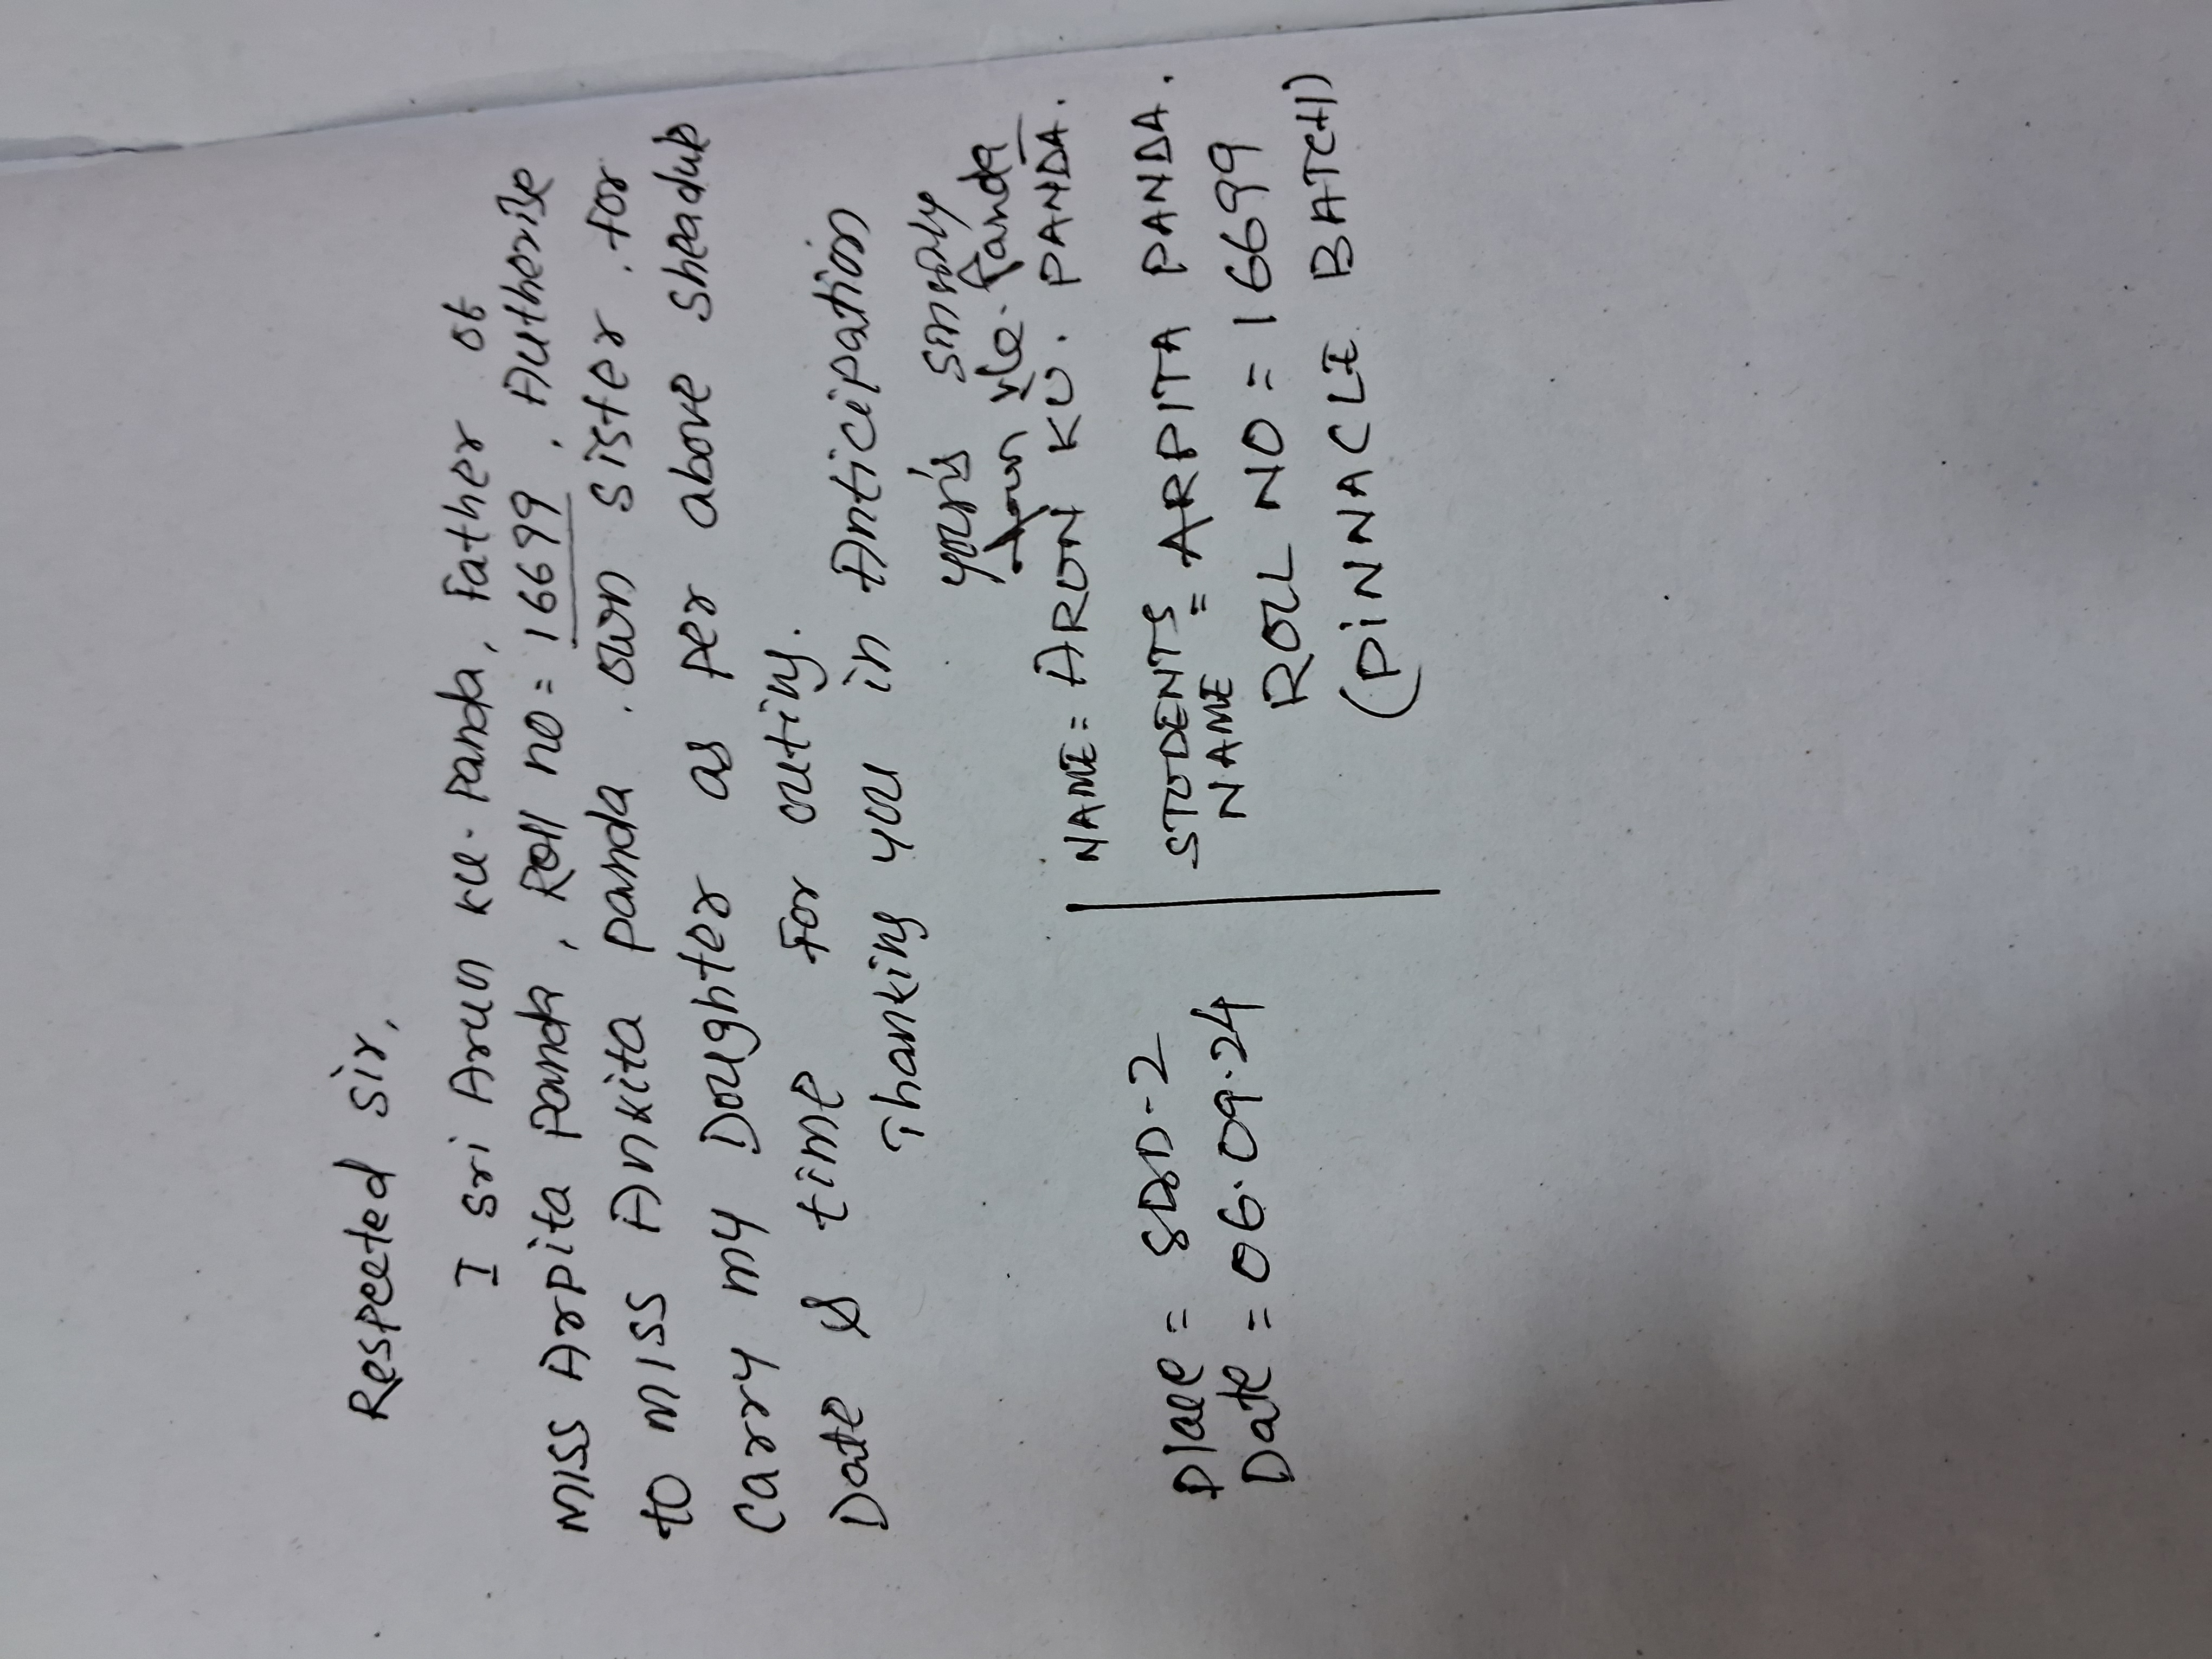 Respected Sir,
I Sri Arun Ku. Panda, Father of
Miss Arpita Panda, Roll no = 16699, Autherise
to Miss Ankita Panda. own sister. for
Carry my Doughter as per above sheadule
Date & time for outing.
Thanking you in Anticipation
your's
Arun Ku. Panda
NAME = ARUN KU. PANDA.
STUDENTS NAME = ARPITA PANDA.
ROLL NO = 16699
(PiNNACLE BATCH)
Place = SDD-2
Date = 06.09.24